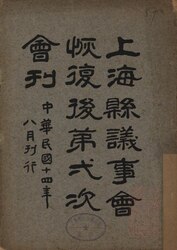 上海縣議事會
恢復後第弍次
會刊
中華民國十四年
八月刊行